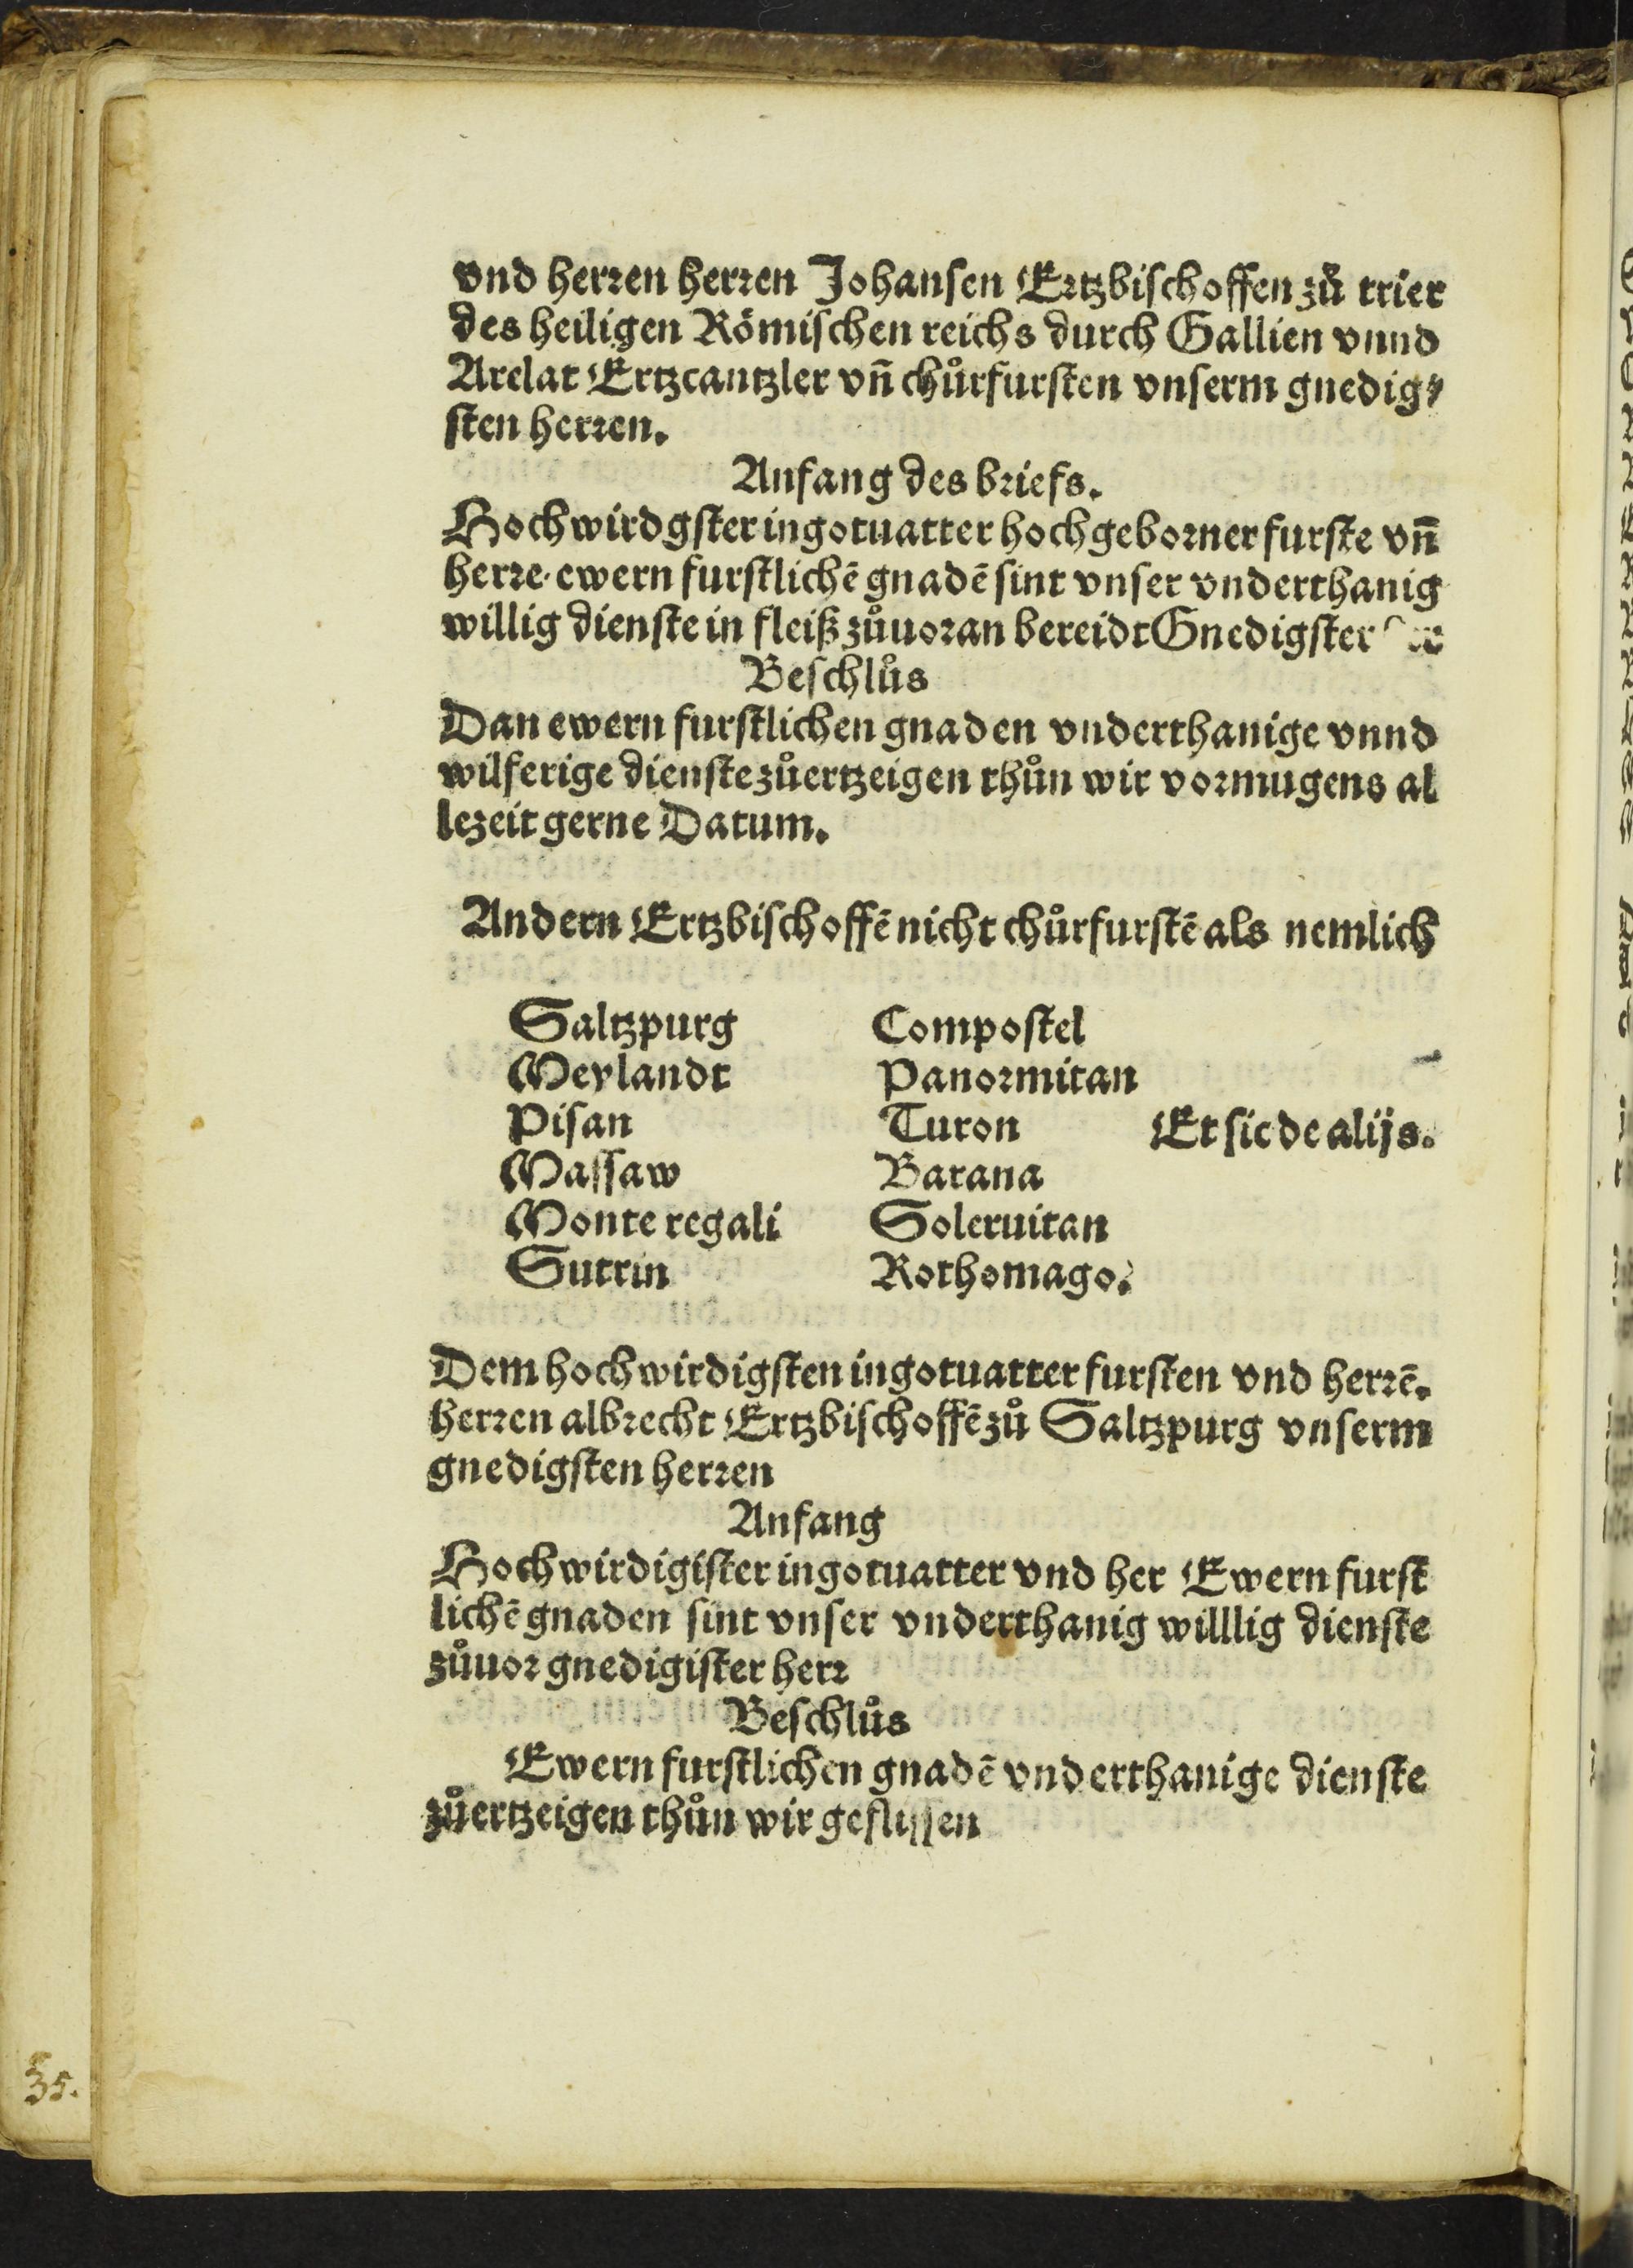 vnd herren herren Johansen Ertzbischoffen zů trier
des heiligen Römischen reichs durch Gallien vnnd
Arelat Ertzcantzler vn̄ chůrfursten vnserm gnedig⸗
sten herren.
Anfang des briefs.
Hochwirdgster in gotuatter hochgeborner furste vn̄
herre. ewern furstlichē gnadē sint vnser vnderthanig
willig dienste in fleiß zůuoran bereidt Gnedigster
Beschlůs
Dan ewern furstlichen gnaden vnderthanige vnnd
wilferige dienste zůertzeigen thůn wir vormugens al
lezeit gerne Datum.
Andern Ertzbischoffē nicht chůrfurstē als nemlich
Saltzpurg Compostel
Meylandt Panormitan
Pisan Turon Et sic de alijs.
Massaw Barana
Monte regali Soleruitan
Sutrin Rothomago.
Dem hochwirdigsten in gotuatter fursten vnd herrē.
herren albrecht Ertzbischoffē zů Saltzpurg vnserm
gnedigsten herren
Anfang
Hochwirdigister in gotuatter vnd her Ewern furst
lichē gnaden sint vnser vnderthanig willlig dienste
zůuor gnedigister herr
Beschlůs
Ewern furstlichen gnadē vnderthanige dienste
zůertzeigen thůn wir geflissen
35.